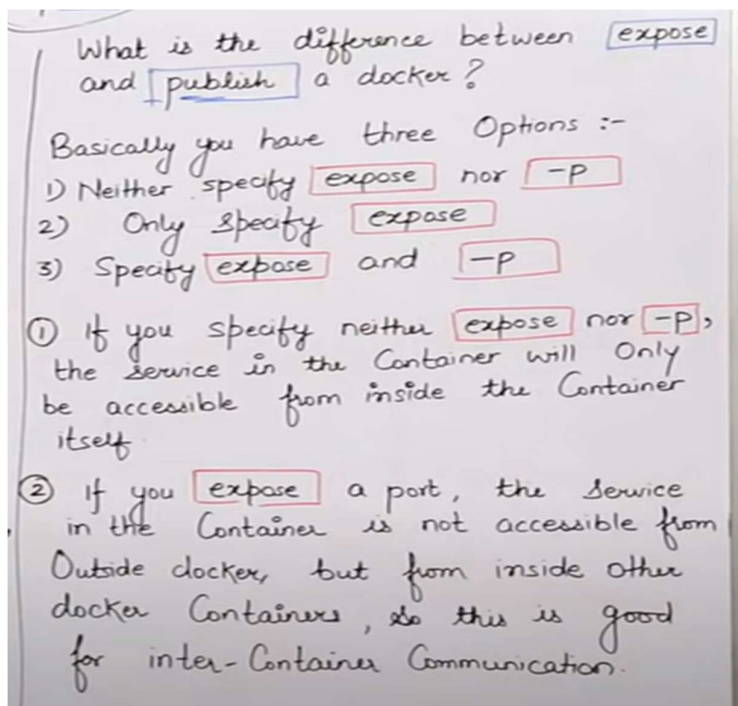 What is the difference between expose
and publish a docker?
Basically you have three Options :-
1) Neither specify expose nor -P
2) Only specify expose
3) Specify expose and -P
① If you specify neither expose nor -P,
the service in the Container will Only
be accessible from inside the Container
itself.
② If you expose a port, the service
in the Container is not accessible from
Outside docker, but from inside other
docker Containers, so this is good
for inter-Container Communication.